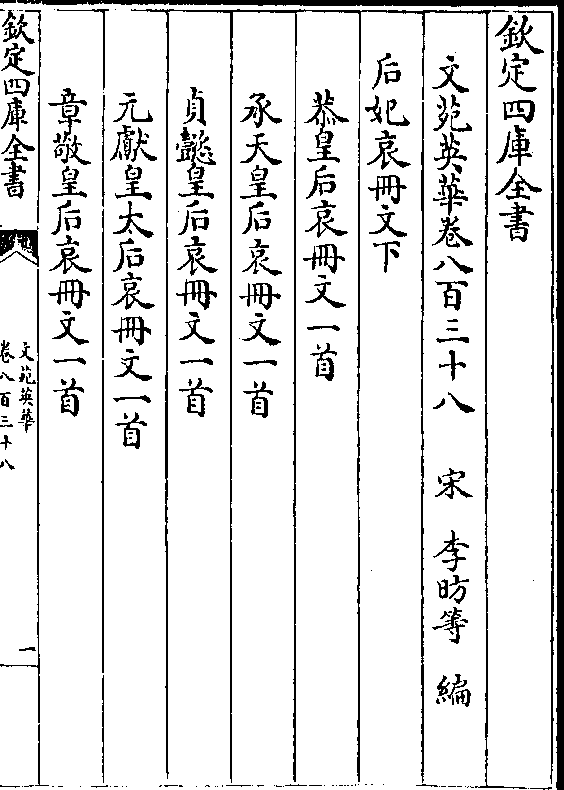 欽定四庫全書
文苑英華卷八百三十八　宋　李昉等　編
后妃哀冊文下
恭皇后哀冊文一首
承天皇后哀冊文一首
貞懿皇后哀冊文一首
元獻皇太后哀冊文一首
章敬皇后哀冊文一首
欽定四庫全書
文苑英華
卷八百三十八
一